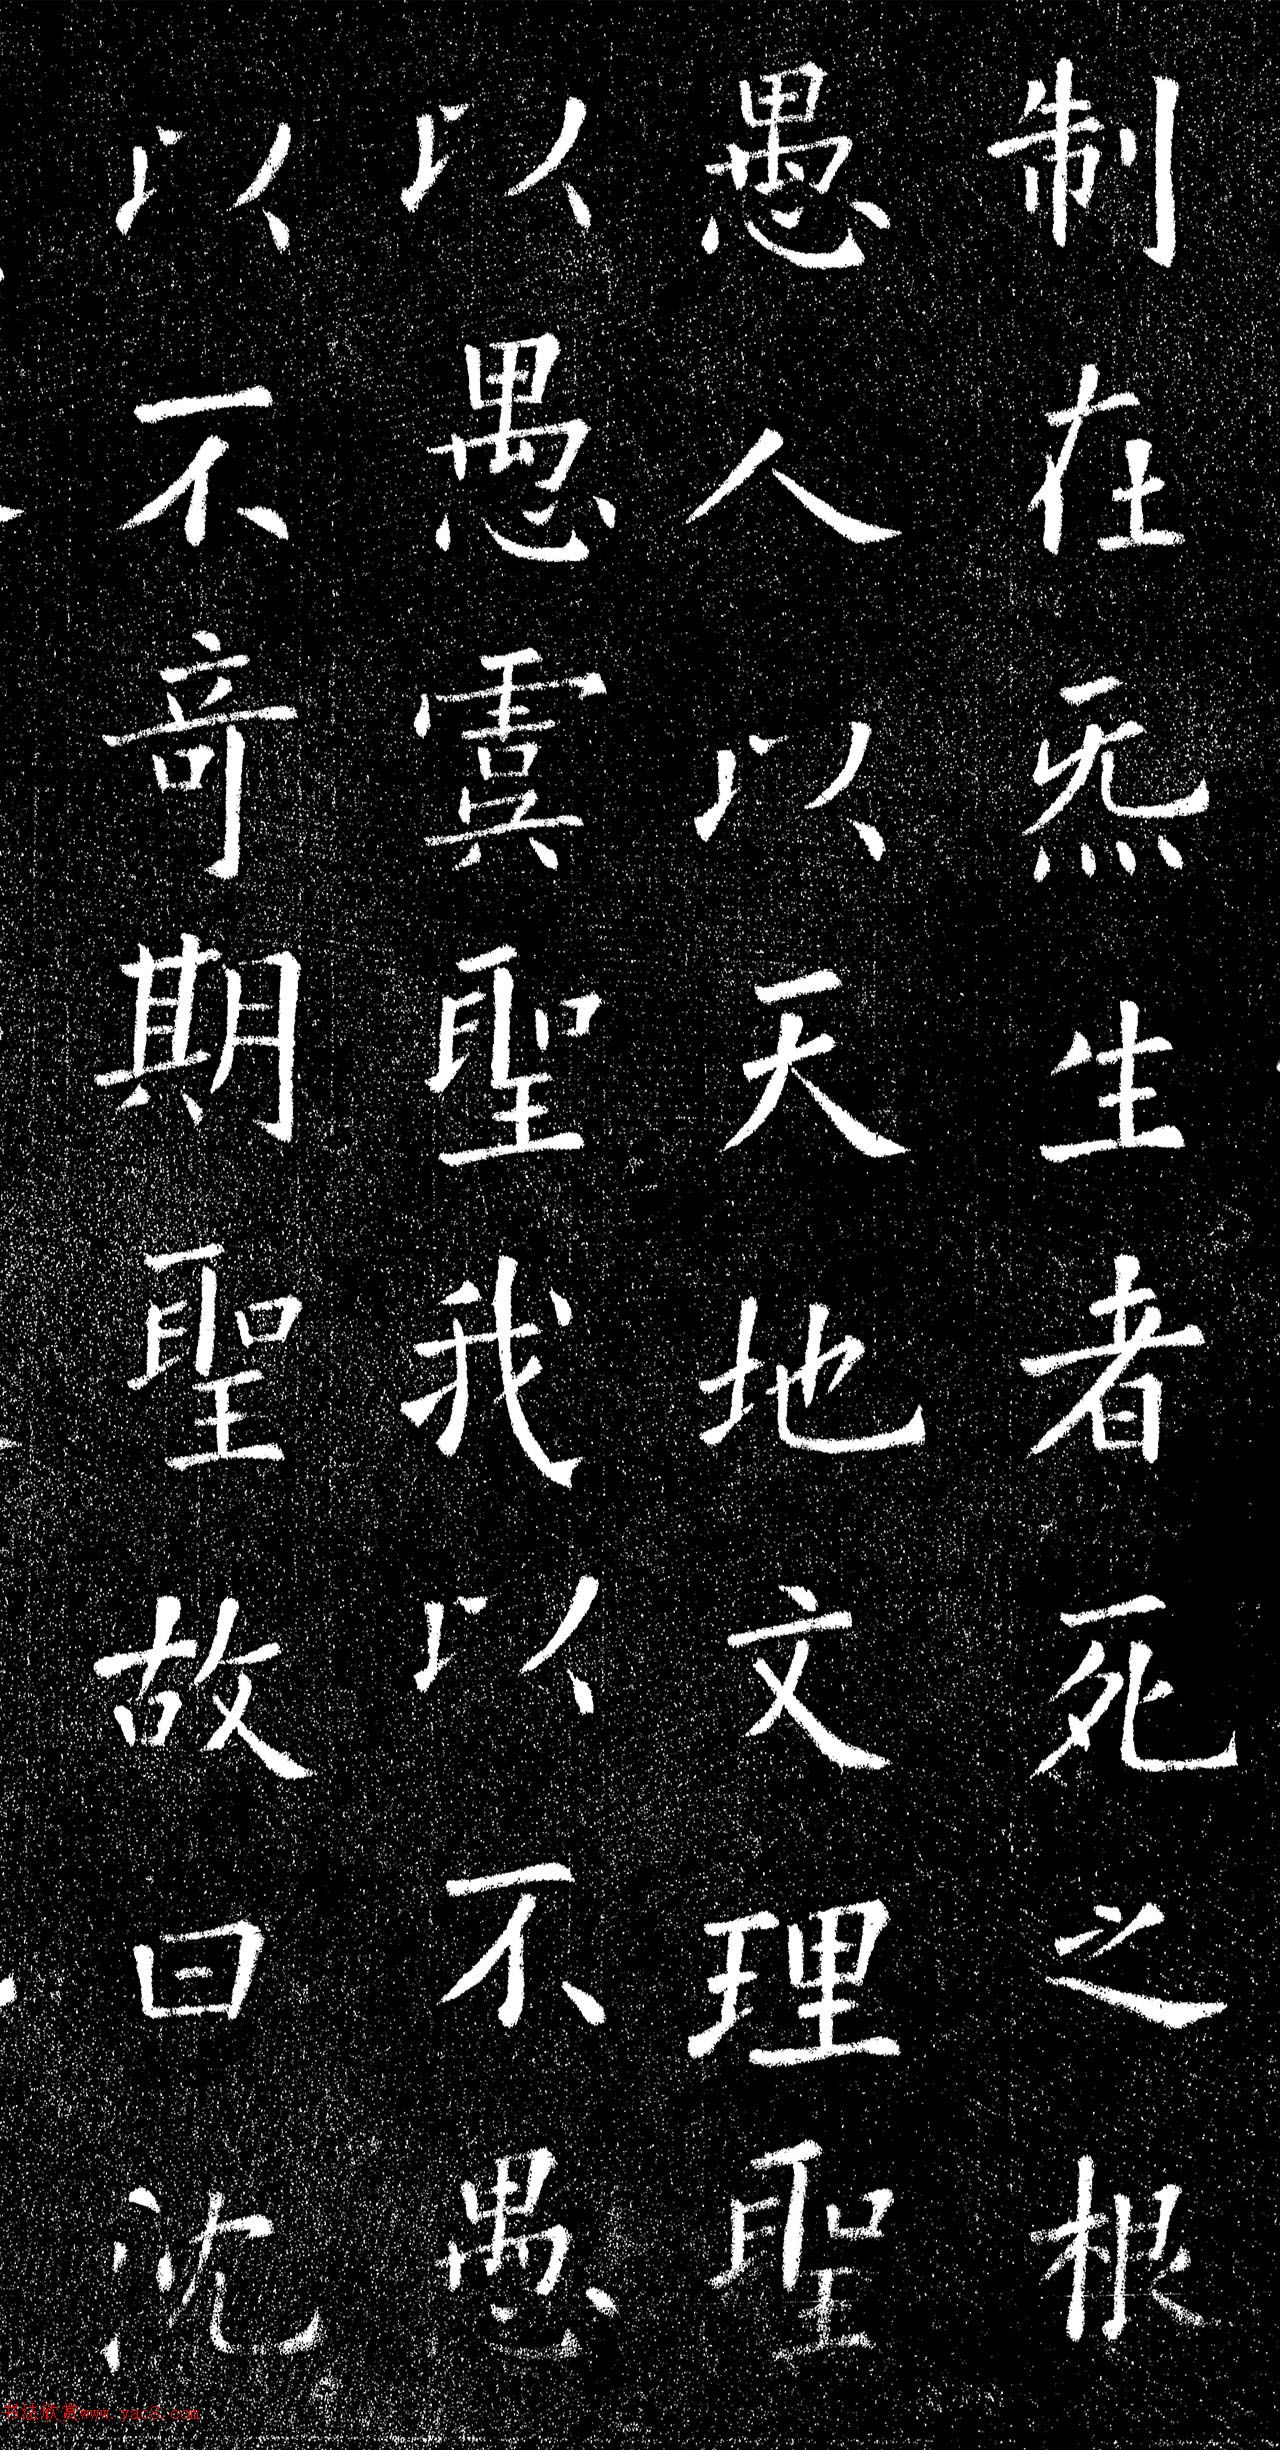 制在炁生者死之根
愚人以天地文理聖
以愚虞聖我以不愚
以不竒期聖故曰沈
书法欣赏www.yac8.com